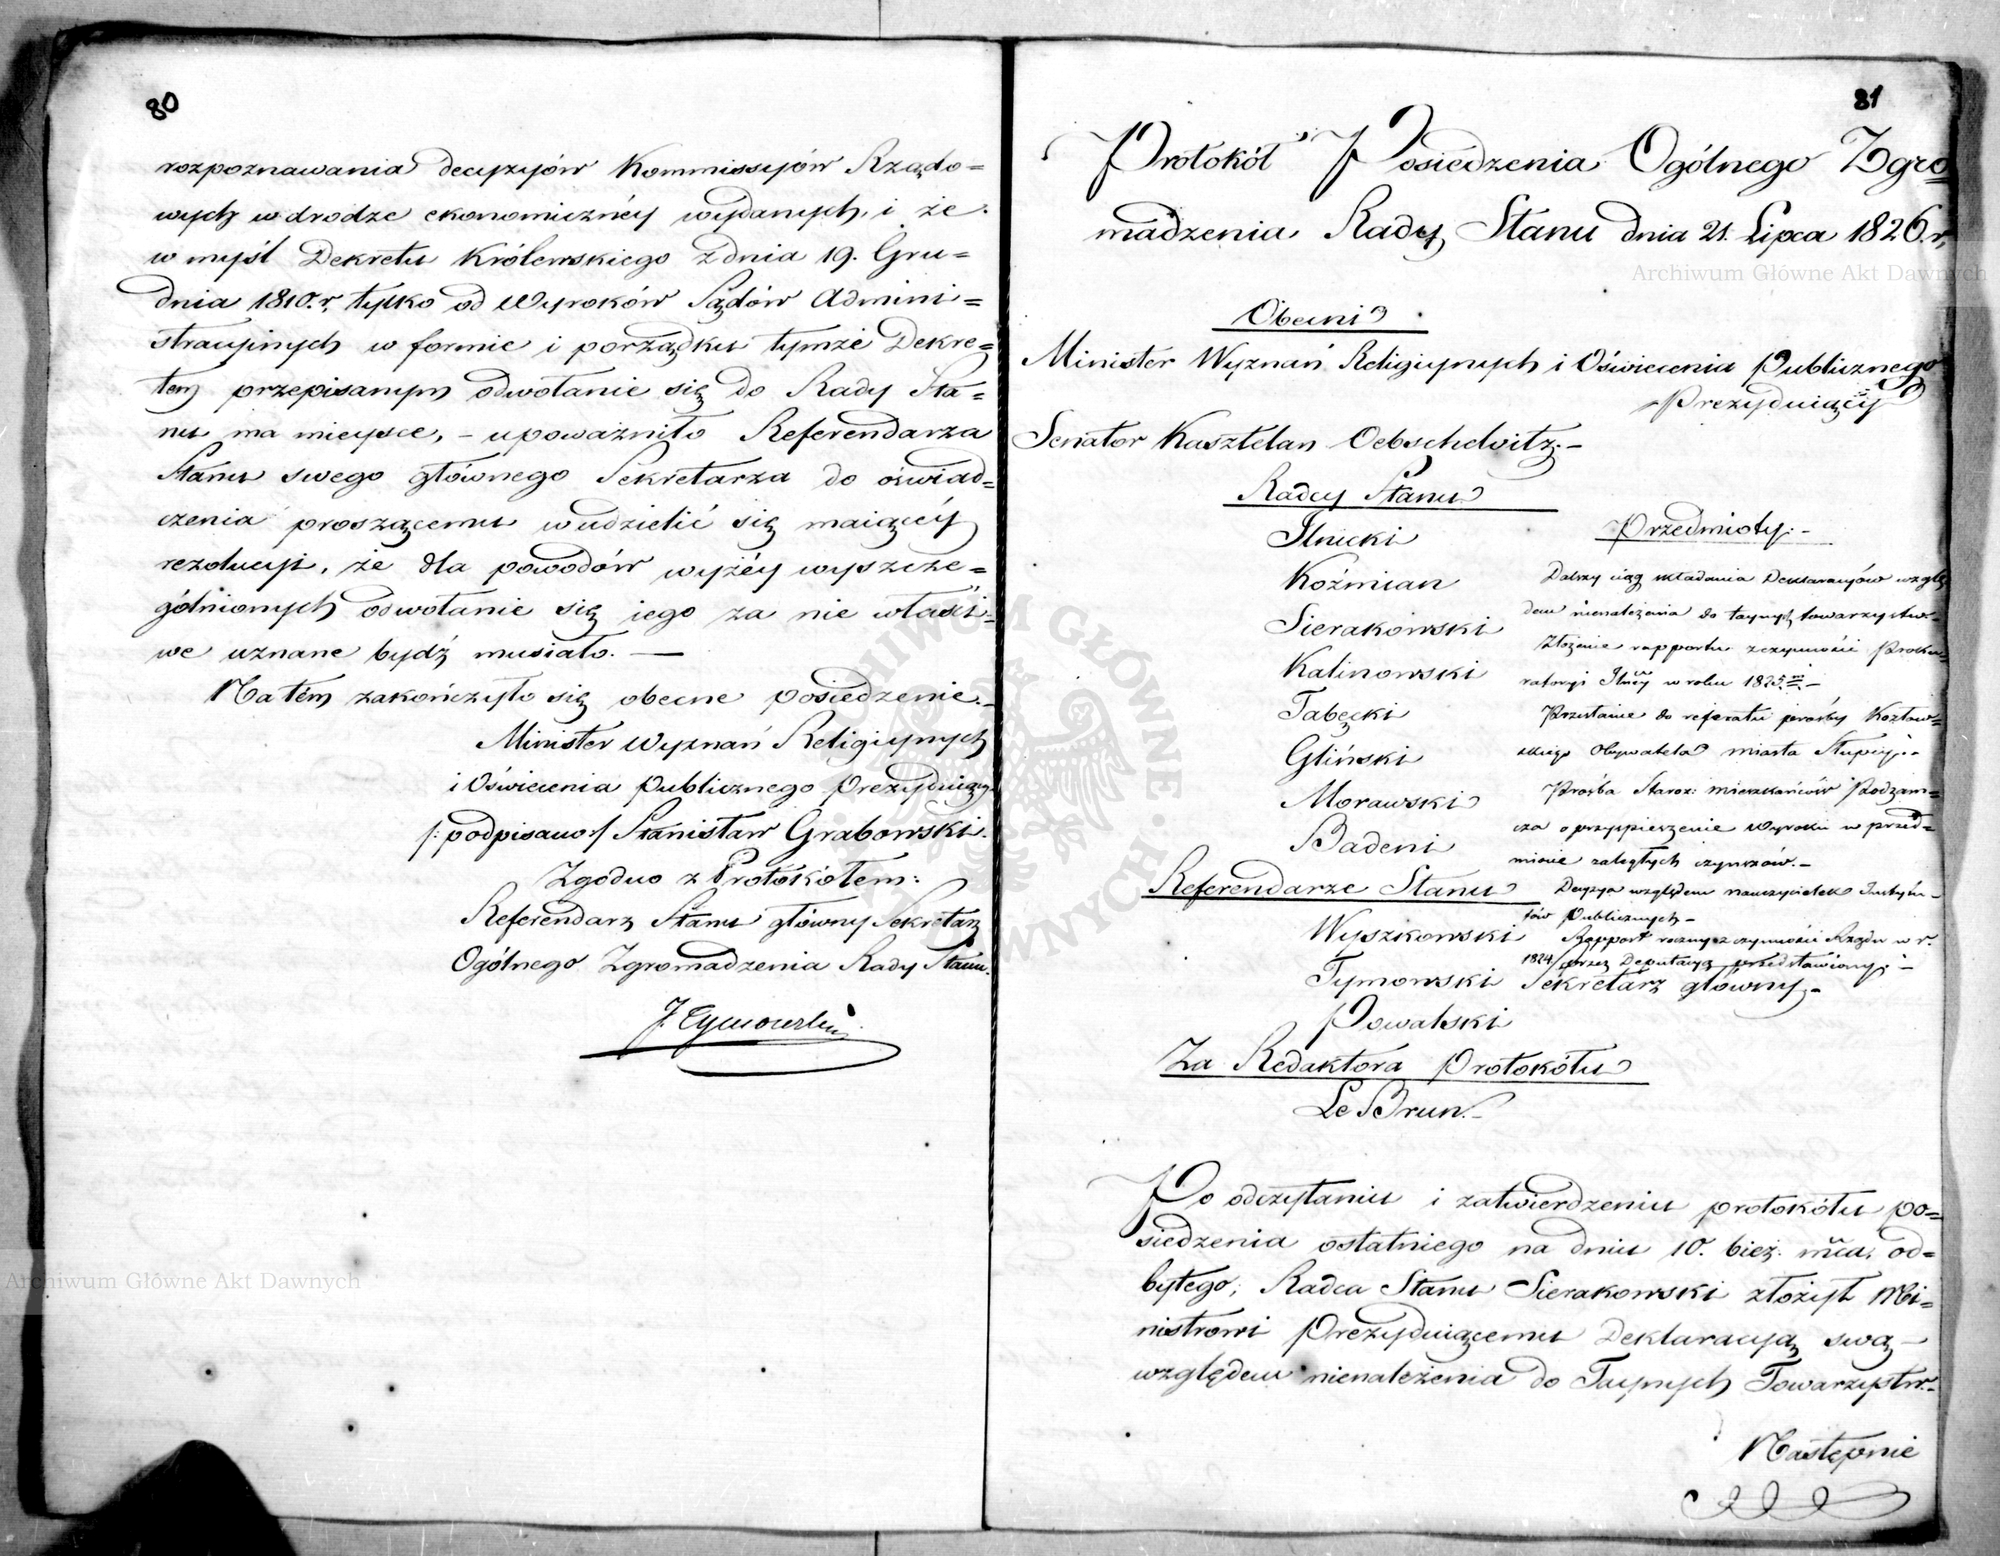 80
rozpoznawania decyzyów Kommissyów Rządo=
wych w drodze ekonomicznéy wydanych, i że
w myśl Dekretu Królewskiego z dnia 19. Gru=
dnia 1810. r. tylko od Wyroków Sądów Admini=
stracyinych w formie i porządku tymże Dekre=
tem przepisanym odwołanie się do Rady Sta=
nu ma mieysce, - upoważniło Referendarza
Stanu swego głównego Sekretarza do oświad=
czenia proszącemu w udzielić się maiącéy
rezolucyi, że dla powodów wyżéy wyszcze=
gólnionych odwołanie się iego za nie właści=
we uznane bydź musiało. —
Na tém zakończyło się obecne posiedzenie.-
Minister Wyznań Religiynych
i Oświecenia Publicznego Prezyduiący
/: podpisano :/ Stanisław Grabowski.
Zgodno z Protokółem:
Referendarz Stanu główny Sekretarz
Ogólnego Zgromadzenia Rady Stanu.
J. Tymowski
81
Protokół Posiedzenia Ogólnego Zgro=
madzenia Rady Stanu dnia 21. Lipca 1826. r.
Obecni
Minister Wyznań Religiynych i Oświecenia Publicznego
Prezyduiący
Senator Kasztelan Oebschelwitz.-
Radcy Stanu
Ilnicki
Koźmian
Sierakowski
Kalinowski
Tabęcki
Gliński
Morawski
Badeni
Referendarze Stanu
Wyszkowski
Tymowski Sekretarz główny.-
Powalski
Za Redaktora Protokółu
Le Brun.-
Przedmioty.-
Dalszy ciąg składania Deklaracyów wzglę=
dem nienależenia do taynych towarzystw.-
Złożenie rapportu z czynności Proku=
ratoryi Jlnéy w roku 1825.-
Przesłanie do referatu prośby Kozłow=
skiego Obywatela miasta Słupcy.-
Prośba Staroz: mieszkańców Podzam=
cza o przyspieszenie Wyroku w przed=
miocie zaległych czynszów.-
Decyzya względem nauczycielek Instytu=
tów Publicznych.-
Rapport roczny z czynności Rządu w r.
1824 przez Deputacyą przedstawiony.-
Po odczytaniu i zatwierdzeniu protokółu po=
siedzenia ostatniego na dniu 10. bież. mca. od=
bytego; Radca Stanu Sierakowski złożył Mi=
nistrowi Prezyduiącemu Deklaracyą swą
względem nienależenia do Taynych Towarzystw.-
Następnie
Archiwum Główne Akt Dawnych
Archiwum Główne Akt Dawnych
ARCHIWUM GŁÓWNE AKT DAWNYCH